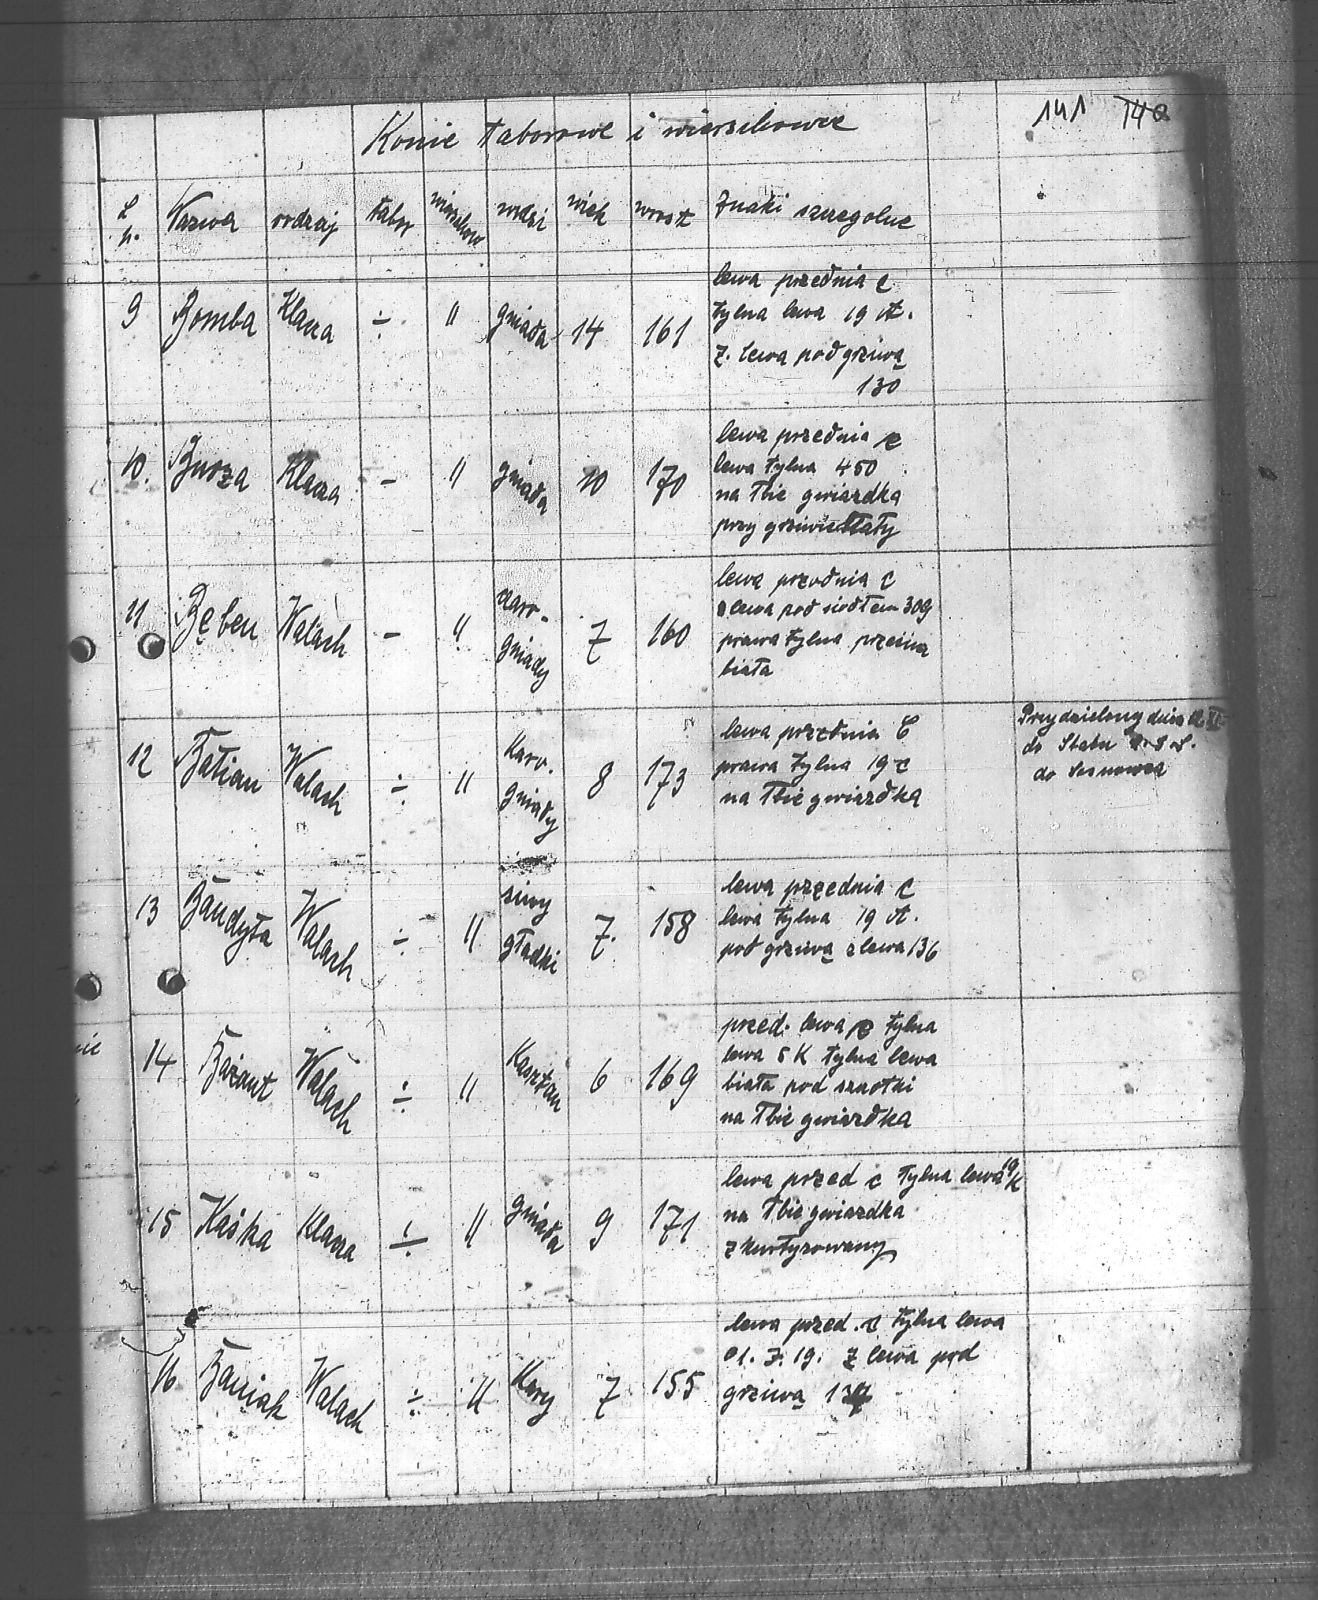 141 140
Konie taborowe i wierzchowe
L. p. Nazwa rodzaj tabor wierzchow maść wiek wzrost Znaki szczególne
9 Bomba Klacz ÷ " gniada 14 161 lewa przednia C
tylna lewa 19 A.
z. lewa pod grziwą
130
10. Burza Klacza - " gniada 10 170 lewa przednia C
lewa tylna 450
na łbie gwiazdka
przy grziwie łaty
11 Bęben Wałach - " Karo-gniady 7 160 lewa przednia C
z lewa pod siodłem 309
prawa tylna pęcina
biała
12 Bałian Wałach ÷ " Karo. gniady 8 173 lewa przednia C
prawa tylna 19 C
na łbie gwiazdka
Przydzielony dnia XI
do Sztabu
do Sosnowca
13 Bandyta Wałach ÷ " siwy gładki 7. 158 lewa przednia C
lewa tylna 19 A.
pod grziwą z lewa 136
14 Bażant Wałach ÷ " Kasztan 6 169 przed. lewa C tylna
lewa 5 K tylna lewa
biała pod szczotki
na łbie gwiazdka
15 Kaśka Klacza ÷ " gniada 9 171 lewa przed C tylna lewa 19 K
na łbie gwiazdka
zkurtyzowany
16 Baniak Wałach ÷ " Kary 7 155 lewa przed. C tylna lewa
01. 7. 19. z lewa pod
grziwą 137